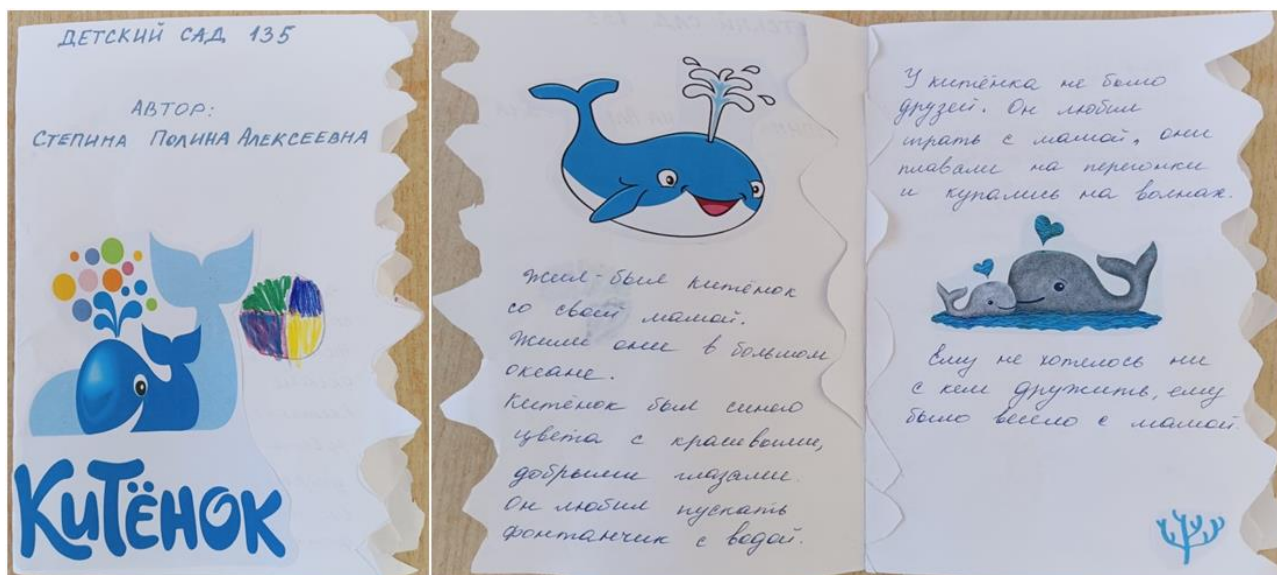 ДЕТСКИЙ САД 135
АВТОР:
СТЕПИНА ПОЛИНА АЛЕКСЕЕВНА
КИТЁНОК
Жил-был китёнок
со своей мамой.
Жили они в большом
океане.
Китёнок был синего
цвета с красивыми,
добрыми глазами.
Он любил пускать
фонтанчик с водой.
У китёнка не было
друзей. Он любил
играть с мамой, они
плавали на перегонки
и купались на волнах.
Ему не хотелось ни
с кем дружить, ему
было весело с мамой